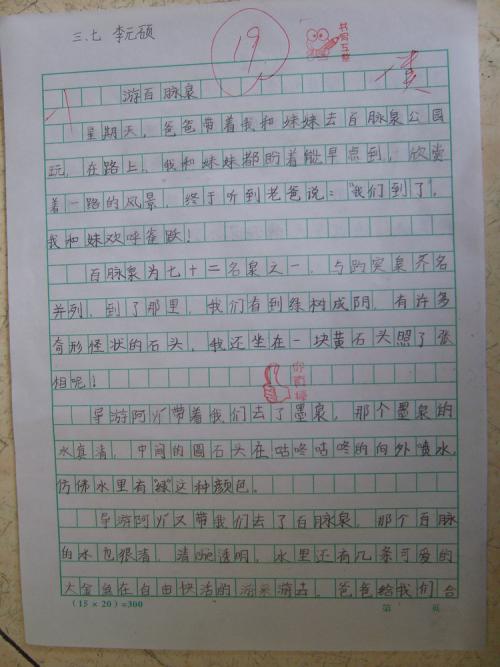 三.七 李元硕
19
游百脉泉
星期天，爸爸带着我和妹妹去百脉泉公园
玩，在路上，我和妹妹都盼着能早点到，欣赏
着一路的风景，终于听到老爸说："我们到了"，
我和妹欢呼雀跃！
百脉泉为七十二名泉之一，与趵突泉齐名
并列，到了那里，我们看到绿树成阴，有许多
奇形怪状的石头，我还坐在一块黄石头照了张
相呢！
导游阿姨带着我们去了墨泉，那个墨泉的
水真清，中间的圆石头在咕咚咕咚的向外喷水，
仿佛水里有"绿"这种颜色。
导游阿姨又带我们去了百脉泉，那个百脉
的水也很清，清晰透明，水里还有几条可爱的
大金鱼在自由快活的游来游去。爸爸给我们合
(15×20)=300
第 页